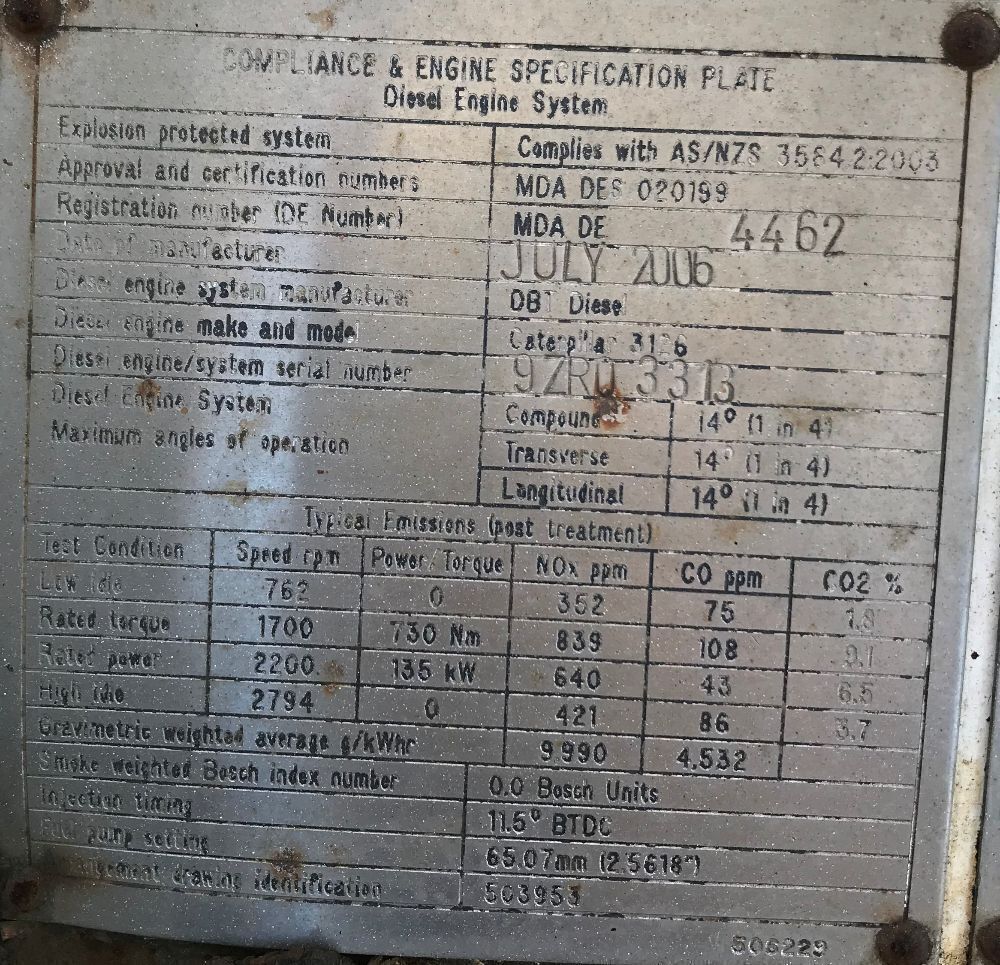 COMPLIANCE & ENGINE SPECIFICATION PLATE
Diesel Engine System
Explosion protected system Complies with AS/NZS 3584.2:2003
Approval and certification numbers MDA DES 020199
Registration number (DE Number) MDA DE 4462
Date of manufacturer JULY 2006
Diesel engine system manufacturer DBT Diesel
Diesel engine make and model Caterpillar 3126
Diesel engine/system serial number 9ZR0
Diesel Engine System Compound 14° (1 in 4)
Maximum angles of operation Transverse 14° (1 in 4)
Longitudinal 14° (1 in 4)
Typical Emissions (post treatment)
Test Condition Speed rpm Power/Torque NOx ppm CO ppm CO2 %
Low idle 762 0 352 75 1.8
Rated torque 1700 730 Nm 839 108 9.1
Rated power 2200 135 kW 640 43 6.5
High idle 2794 0 421 86 3.7
Gravimetric weighted average g/kWhr 9.990 4.532
Smoke weighted Bosch index number 0.0 Bosch Units
Injection timing 11.5° BTDC
Fuel pump setting 65.07mm (2.5618")
drawing identification 503953
506229